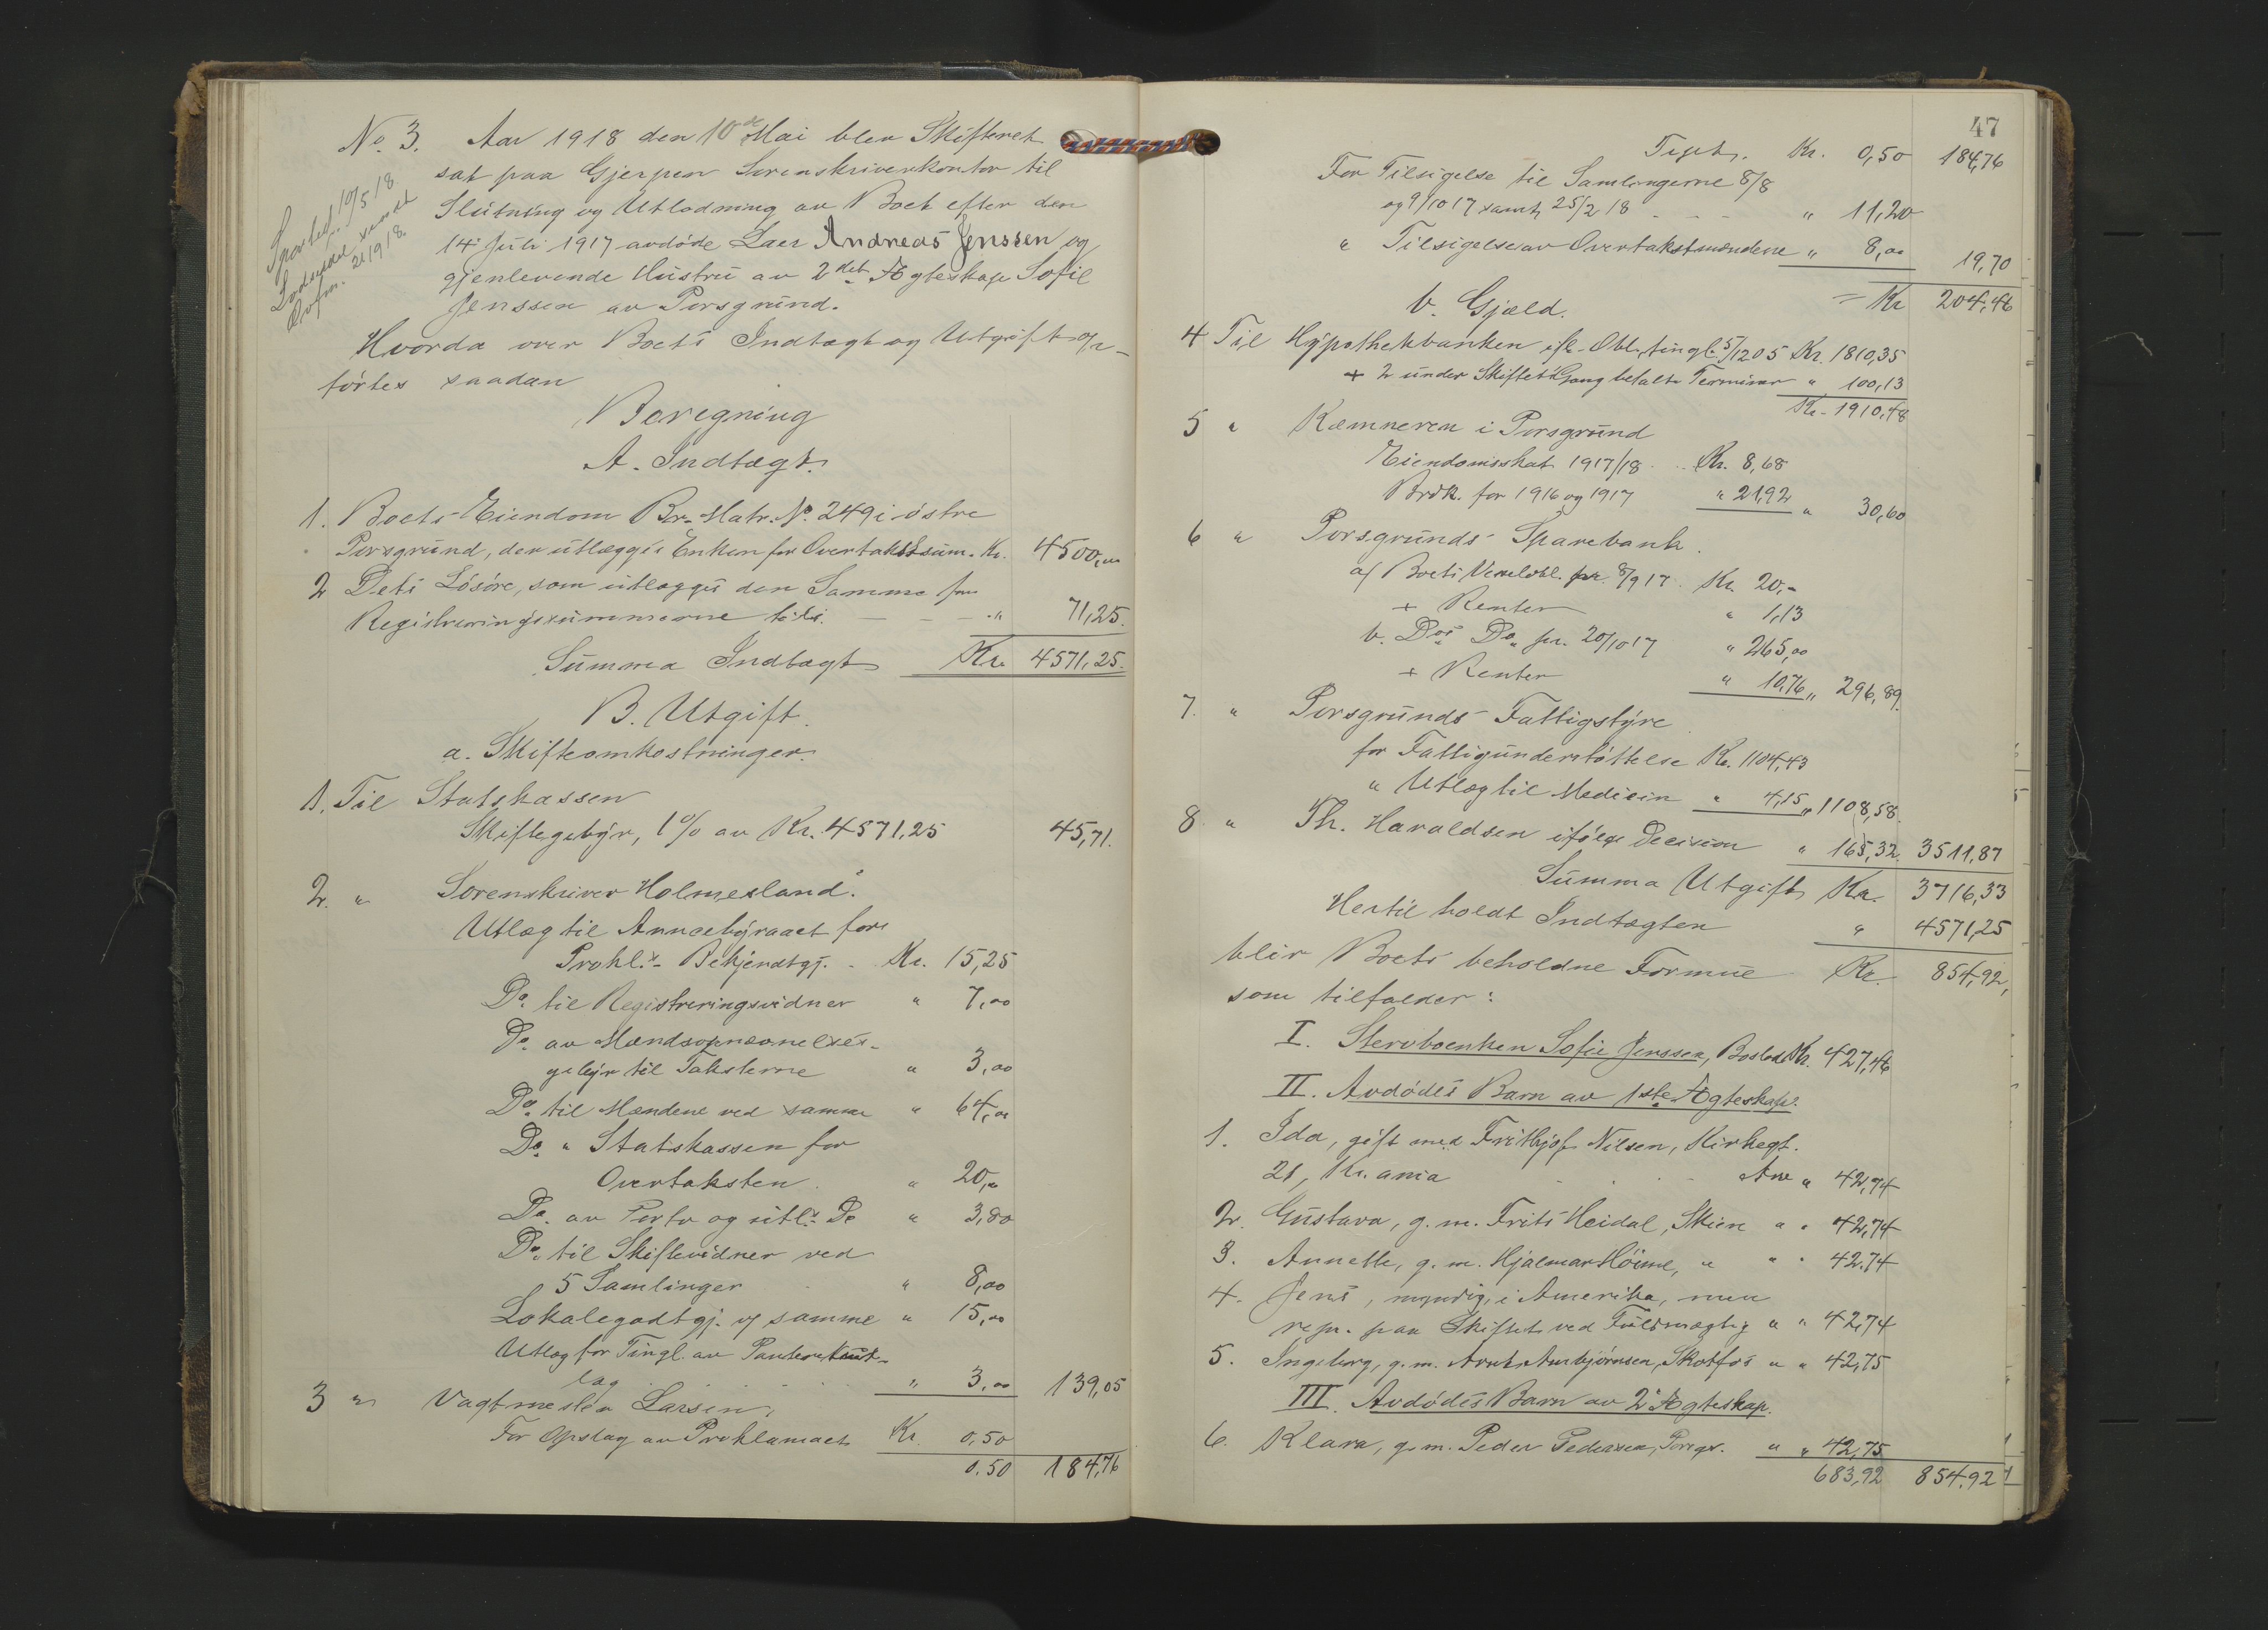 No. 3. Aar 1918 den 10de Mai blev Skifteret
sat paa Gjerpen Sorenskriverkontor til
Slutning og Utlodning av Boet efter den
14. Juli 1917 avdöde Laer Andreas Jenssen og
gjenlevende Hustru av 2det Ægteskap Sofie
Jenssen av Porsgrund.
10/5 18
21/9 18.
Hvorda over Boets Indtægt og Utgift op-
førtes saadan
Beregning
A. Indtægt.
1. Boets Eiendom Br. Matr. No. 249 i östre
Porsgrund, der utlægges Enken for Overtakstsum. Kr. 4500,00
2 Dets Lösöre, som utlægges den Samme for
Registreringssummerne til " 71,25.
Summa Indtægt Kr. 4571,25.
B. Utgift.
a. Skifteomkostninger.
1. Til Statskassen
Skiftegebyr, 1% av Kr. 4571,25 45,71.
2. " Sorenskriver Holmesland:
Utlæg til Annoebyraaet for
Prokl.s Bekjendtgj. - Kr. 15,25
Do. til Registreringsvidner " 7,00
Do. av Mændsopnævnelses-
gebyr til Taksterne " 3,00
Do. til Mændene ved samme " 64,00
Do. " Statskassen for
Overtaksten. " 20,00
Do. av Porto og Do " 3,80
Do. til Skiftevidner ved
5 Samlinger " 8,00
Lokalegodtgj. v/ samme " 15,00
Utlæg for Tingl. av
læg " 3,00 139,05
3 " Vagtmester Larsen,
For Opslag av Proklamaet Kr. 0,50
0,50 184,76
47
Kr. 0,50 184,76
For Tilsigelse til Samlingerne 8/8
og 9/10 17 samt 25/2 18 " 11,20
" Tilsigelse av Overtakstmændene " 8,00 19,70
b. Gjæld. = Kr 204,46
4 Til Hypothekbanken ifl. Obl. tingl. 5/12 05 Kr. 1810,35
+ 2 under Skiftets Gang betalte Terminer " 100,13
Kr. 1910,48
5 " Kæmneren i Porsgrund
Eiendomsskat 1917/18 Kr. 8,68
Brdk. for 1916 og 1917 " 21,92 " 30,60
6 " Porsgrunds Sparebank.
a/ Boets Vexelobl. pr. 8/9 17 Kr. 20,-
+ Renter " 1,13
b. Dos Do. pr. 20/10 17 " 265,00
+ Renter " 10,76 " 296,89.
7. " Porsgrunds Fattigstyre
for Fattigunderstöttelse Kr. 1104,43
" Utlæg til Medicin " 4,15 " 1108,58.
8 " Th. Haraldsen ifölge Decision " 165,32 3511,87
Summa Utgift Kr. 3716,33
Hertil holdt Indtægten " 4571,25
blir Boets beholdne Formue Kr. 854,92,
som tilfalder:
I. Stervboenken Sofie Jenssen, Boslod Kr. 427,46
II. Avdödes Barn av 1ste Ægteskap.
1. Ida, gift med Frithjof Nilsen, Kirkegt.
21, Kr.ania Arv " 42,74
2. Gustava, g. m. Frits Heidal, Skien " " 42,74
3. Annette, g. m. Hjalmar Höime, " " " 42,74
4. Jens, myndig, i Amerika, men
repr. paa Skiftet ved Fuldmægtig " " 42,74
5. Ingeborg, g. m. Arnt Arnbjörnsen, Skotfos " " 42,75
III. Avdödes Barn av 2. Ægteskap.
6. Klara, g. m. Peder Pedersen, Porsgr. " " 42,75
683,92 854,92